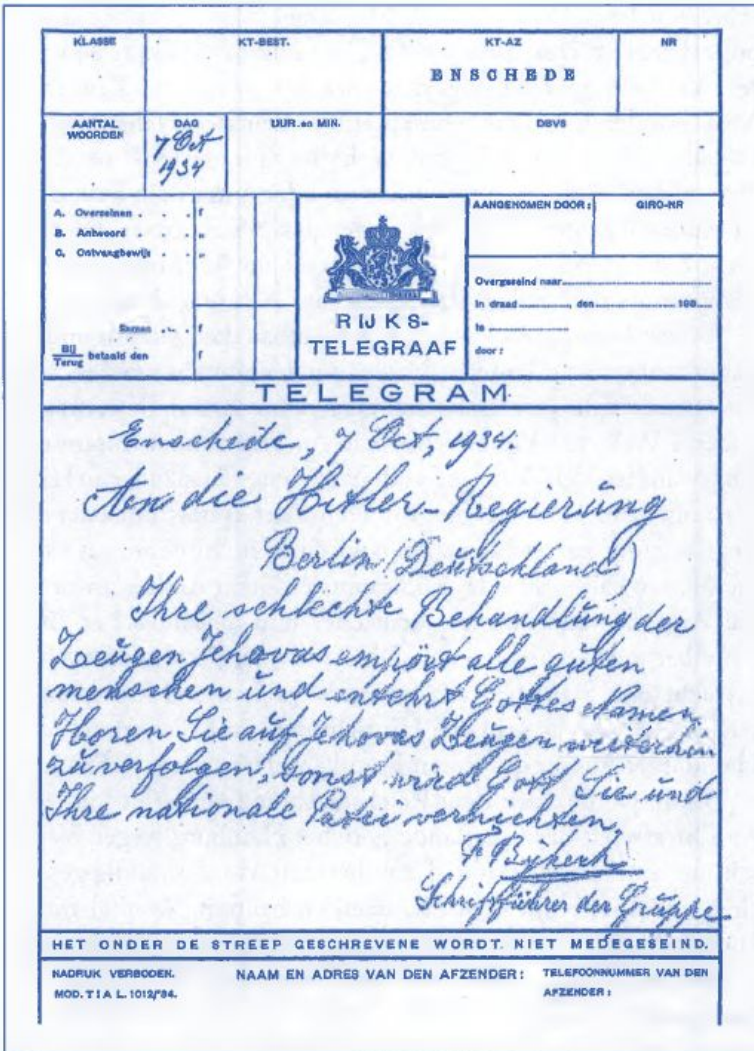 KLASSE KT-BEST. KT-AZ NR
ENSCHEDE
AANTAL WOORDEN DAG UUR.en MIN. DBVS
7 Oct
1934
A. Overseinen . . f
B. Antwoord . „
C. Ontvangbewijs „
Samen . . . f
Bij
Terug betaald den f
RIJKS-
TELEGRAAF
AANGENOMEN DOOR: GIRO-NR
Overgeseind naar
In draad , den 193
te
door:
TELEGRAM
Enschede, 7 Oct, 1934.
An die Hitler-Regierung
Berlin (Deutschland)
Ihre schlechte Behandlung der
Zeugen Jehovas empört alle guten
menschen und entehrt Gottes Namen,
Horen Sie auf Jehovas Zeugen weiterhin
zu verfolgen, sonst wird Gott Sie und
Ihre nationale Patei vernichten,
F Bykerk
Schriftführer der Gruppe
HET ONDER DE STREEP GESCHREVENE WORDT. NIET MEDEGESEIND.
NADRUK VERBODEN. NAAM EN ADRES VAN DEN AFZENDER: TELEFOONNUMMER VAN DEN
MOD. T I A L. 1012/'34. AFZENDER: